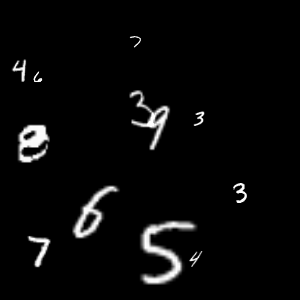 7
4 6
3 9 3
8
3
6
7 5 4